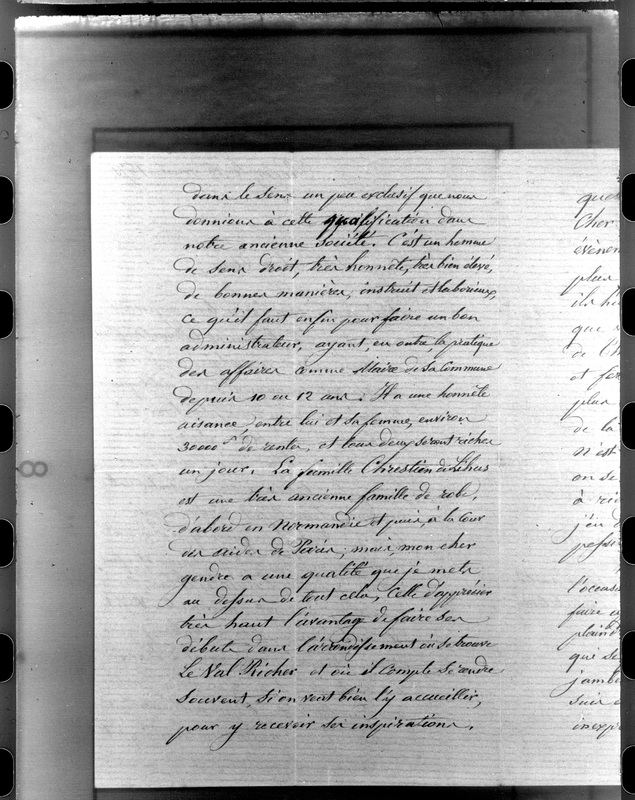 dans le sens un peu exclusif que nous
donnions à cette qualification dans
notre ancienne société. C'est un homme
de sens droit, très honnête, très bien élevé,
de bonnes manières, instruit et laborieux,
ce qu'il faut enfin pour faire un bon
administrateur, ayant en outre, la pratique
des affaires comme Maire de sa Commune
depuis 10 ou 12 ans. Il a une honnête
aisance entre lui et sa femme, environ
30000 f de rentes, et tous deux seront riches
un jour. La famille Christian de
est une très ancienne famille de robe,
d'abord en Normandie et puis, à la Cour
des aides de Paris; mais, mon cher
gendre a une qualité que je mets
au dessus de tout cela, celle d'apprécier
très haut l'avantage de faire ses
débuts dans l'arrondissement où se trouve
Le Val Richer et où il compte se rendre
souvent, si on veut bien l'y accueillir,
pour y recevoir ses inspirations.
Cher
évènem
plus
ils
que
de
et
plus
de la
n'est
on se
à
j'en
l'occas
faire
plaind
qui se
jamb
suis
inexpr
8